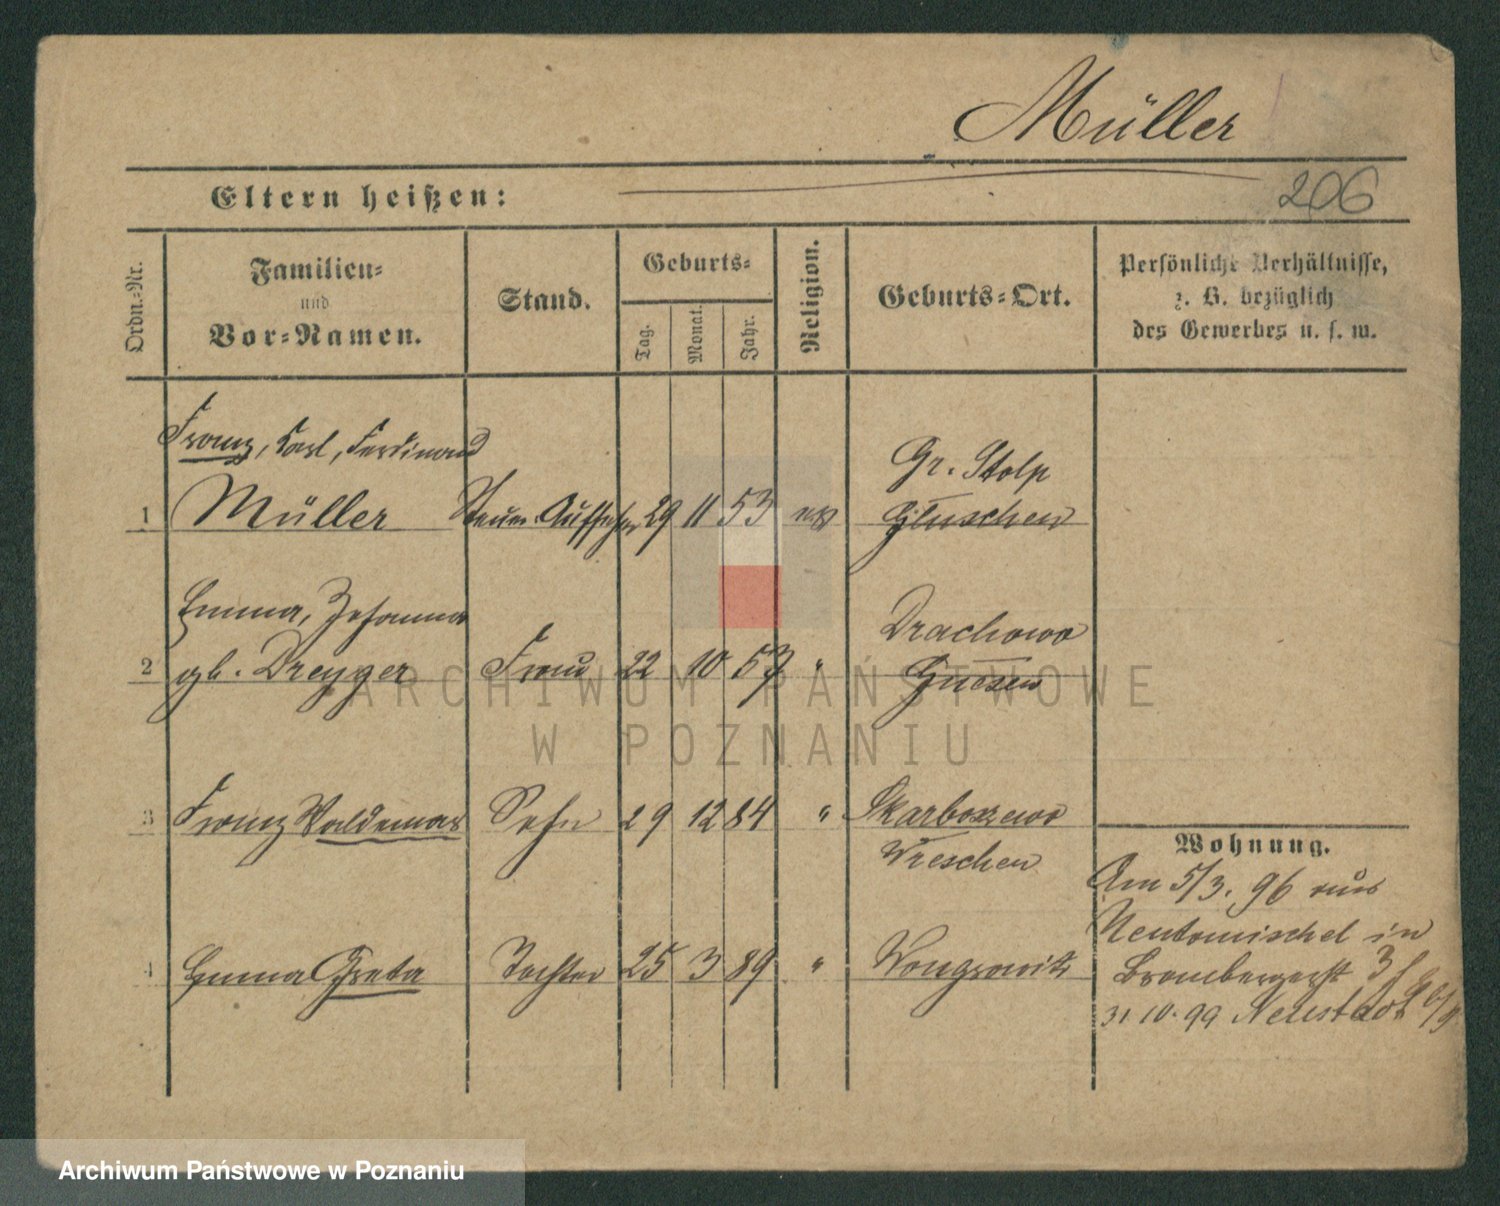 Müller
Eltern heißen:
206
Ordn.-Nr.
Familien-
und
Vor-Namen.
Stand.
Geburts-
Tag.
Monat.
Jahr.
Religion.
Geburts-Ort.
Persönliche Verhältnisse,
z. B. bezüglich
des Gewerbes u. s. w.
Franz, Karl, Ferdinand
Gr. Stolp
1 Müller Steuer-Aufseher 29 11 53 Gluschen
Emma, Johanna
Drachowo
2 gb. Dreyger Frau 22 10 53 " Gnesen
3 Franz Waldemar Sohn 29 12 84 " Skarboszewo
Wreschen
4 Emma Greta Tochter 25 3 89 " Wongrowitz
Wohnung.
Am 5/3. 96 aus
Neutomischel in
Brombergerst 3
31. 10. 99 Neustadt
ARCHIWUM PAŃSTWOWE
W POZNANIU
Archiwum Państwowe w Poznaniu